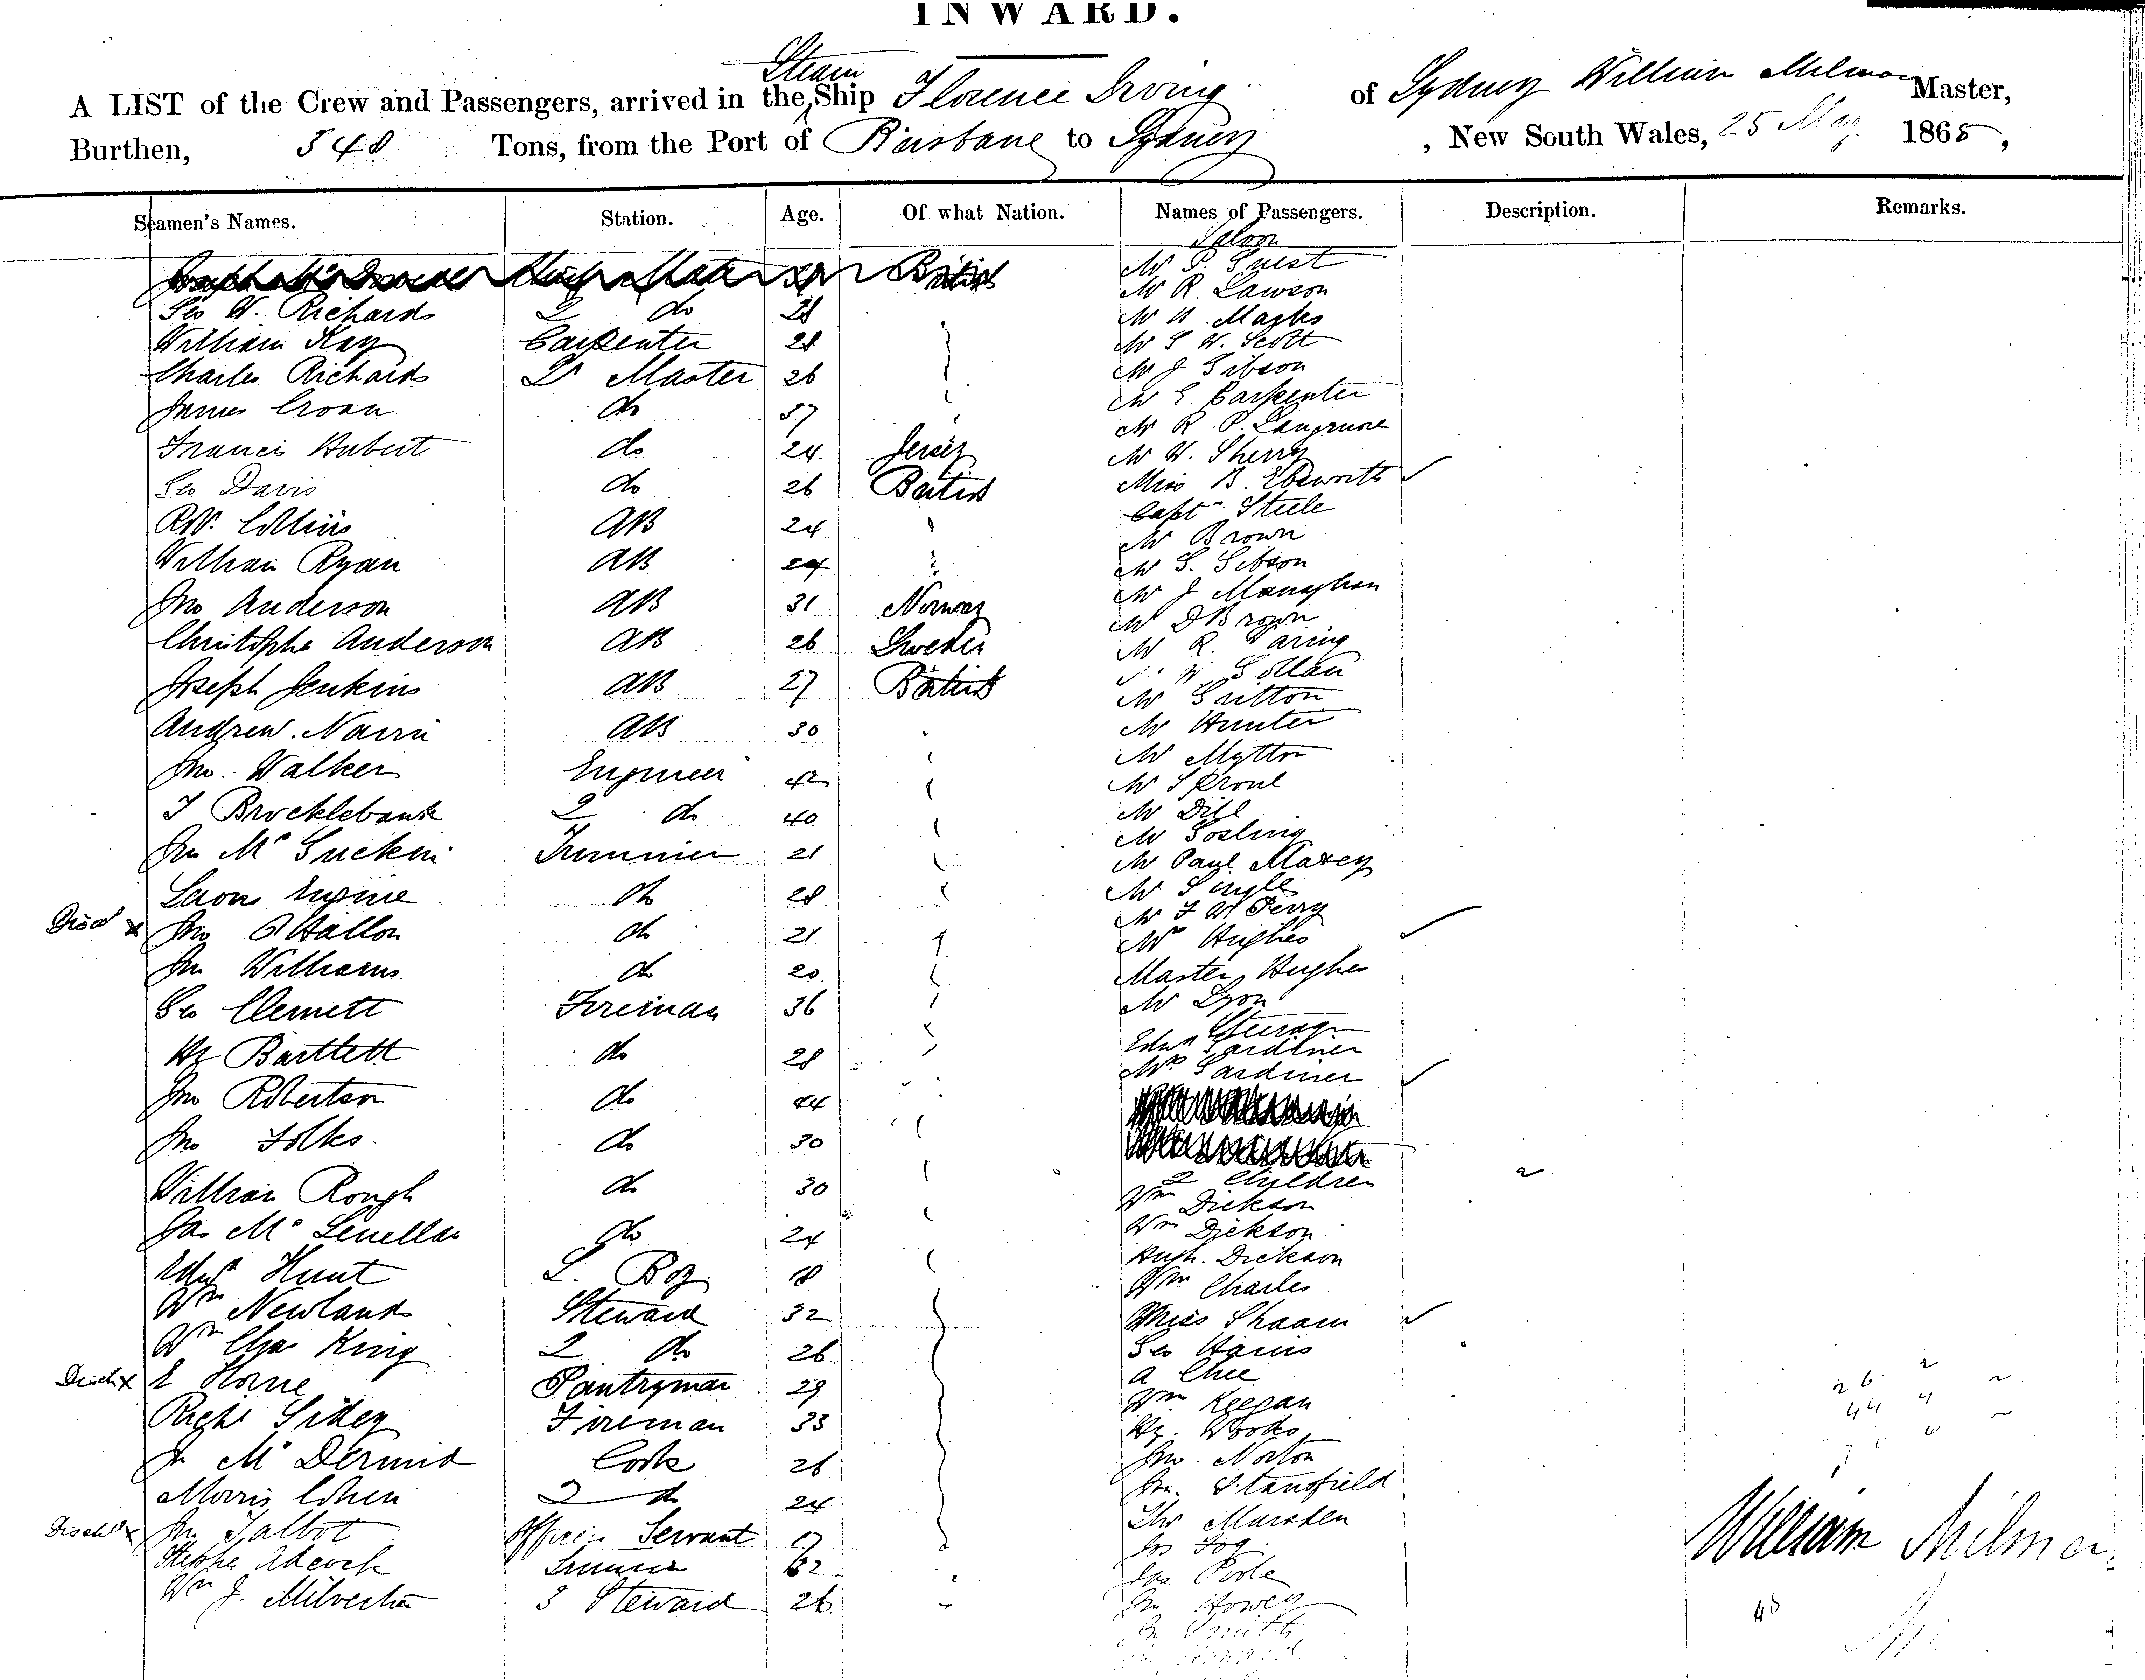 INWARD.
A LIST of the Crew and Passengers, arrived in the Steam Ship Florence Irving of Sydney William Milman Master,
Burthen, 348 Tons, from the Port of Brisbane to Sydney, New South Wales, 25 May 1865,
Seamen's Names. Station. Age. Of what Nation. Names of Passengers. Description. Remarks.
Saloon
British Mr P. Guest
Geo W. Richards 2 do 28 Mr R. Lawson
William Kay Carpenter 28 Mr Marks
Mr W. Scott
Charles Richards Qr Master 26 Mr J Gibson
James Croan do 37 Mr E Carpenter
Mr R. P.
Francis Hubert do 24 Jersey Mr W. Sherry
Geo Davis do 26 British Miss B. Ebsworth
Capt Steele
RW. Collins AB 24 Mr Brown
William Ryan AB 24 Mr S. Gibson
Jno Anderson AB 31 Norway Mr J Monaghan
Mr D Brown
Christophe Anderson AB 26 Sweden Mr R. Waring
Joseph Jenkins AB 27 British
Mr Gritton
Andrew Nairn AB 30 Mr Hunter
Mr Mytton
Jno. Walker Engineer 42 Mr Sproul
J Brocklebank 2 do 40 Mr Dill
Mr Gosling
Jno Mc Guckin Trimmer 21 Mr Paul Maxey
Eugine do 28 Mr Single
Mr F W Perry
Discd x Jno O'Hallon do 21 Mrs Hughes
Jno Williams do 20 Master Hughes
Geo Clemett Fireman 36 Mr Lyon
Steerage
Hy Bartlett do 28 Edwd Gardiner
Mrs Gardiner
Jno Robertson do 44
Jno Folks do 30
2 Children 2
William Rough do 30 Wm Dickson
Jas Mc Lenellan do 24 Wm Dickson
Hugh Dickson
Edwd Hunt S. Boy 18 Wm Charles
Wm Newland Steward 32 Miss Shaam
Wm Chas King 2 do 26 Geo Hains
Disch x E Horne Pantryman 29 A Chee
Wm Keegan
Richd Sidey Fireman 33 Hy. Woods
J Mc Dermid Cook 26 Jno. Norton
Morris Cohen 2 do 24 Jno. Stansfield
Thos Marsden
Dischd x Jno Talbot Officers Servant 17 Jos Fog
Stephe Adcock Trimmer 32 Jas Poole
Wm J. Milverton 3 Steward 26 Jno Howey
Jno Smith
26 2
44 4
William Milman
48